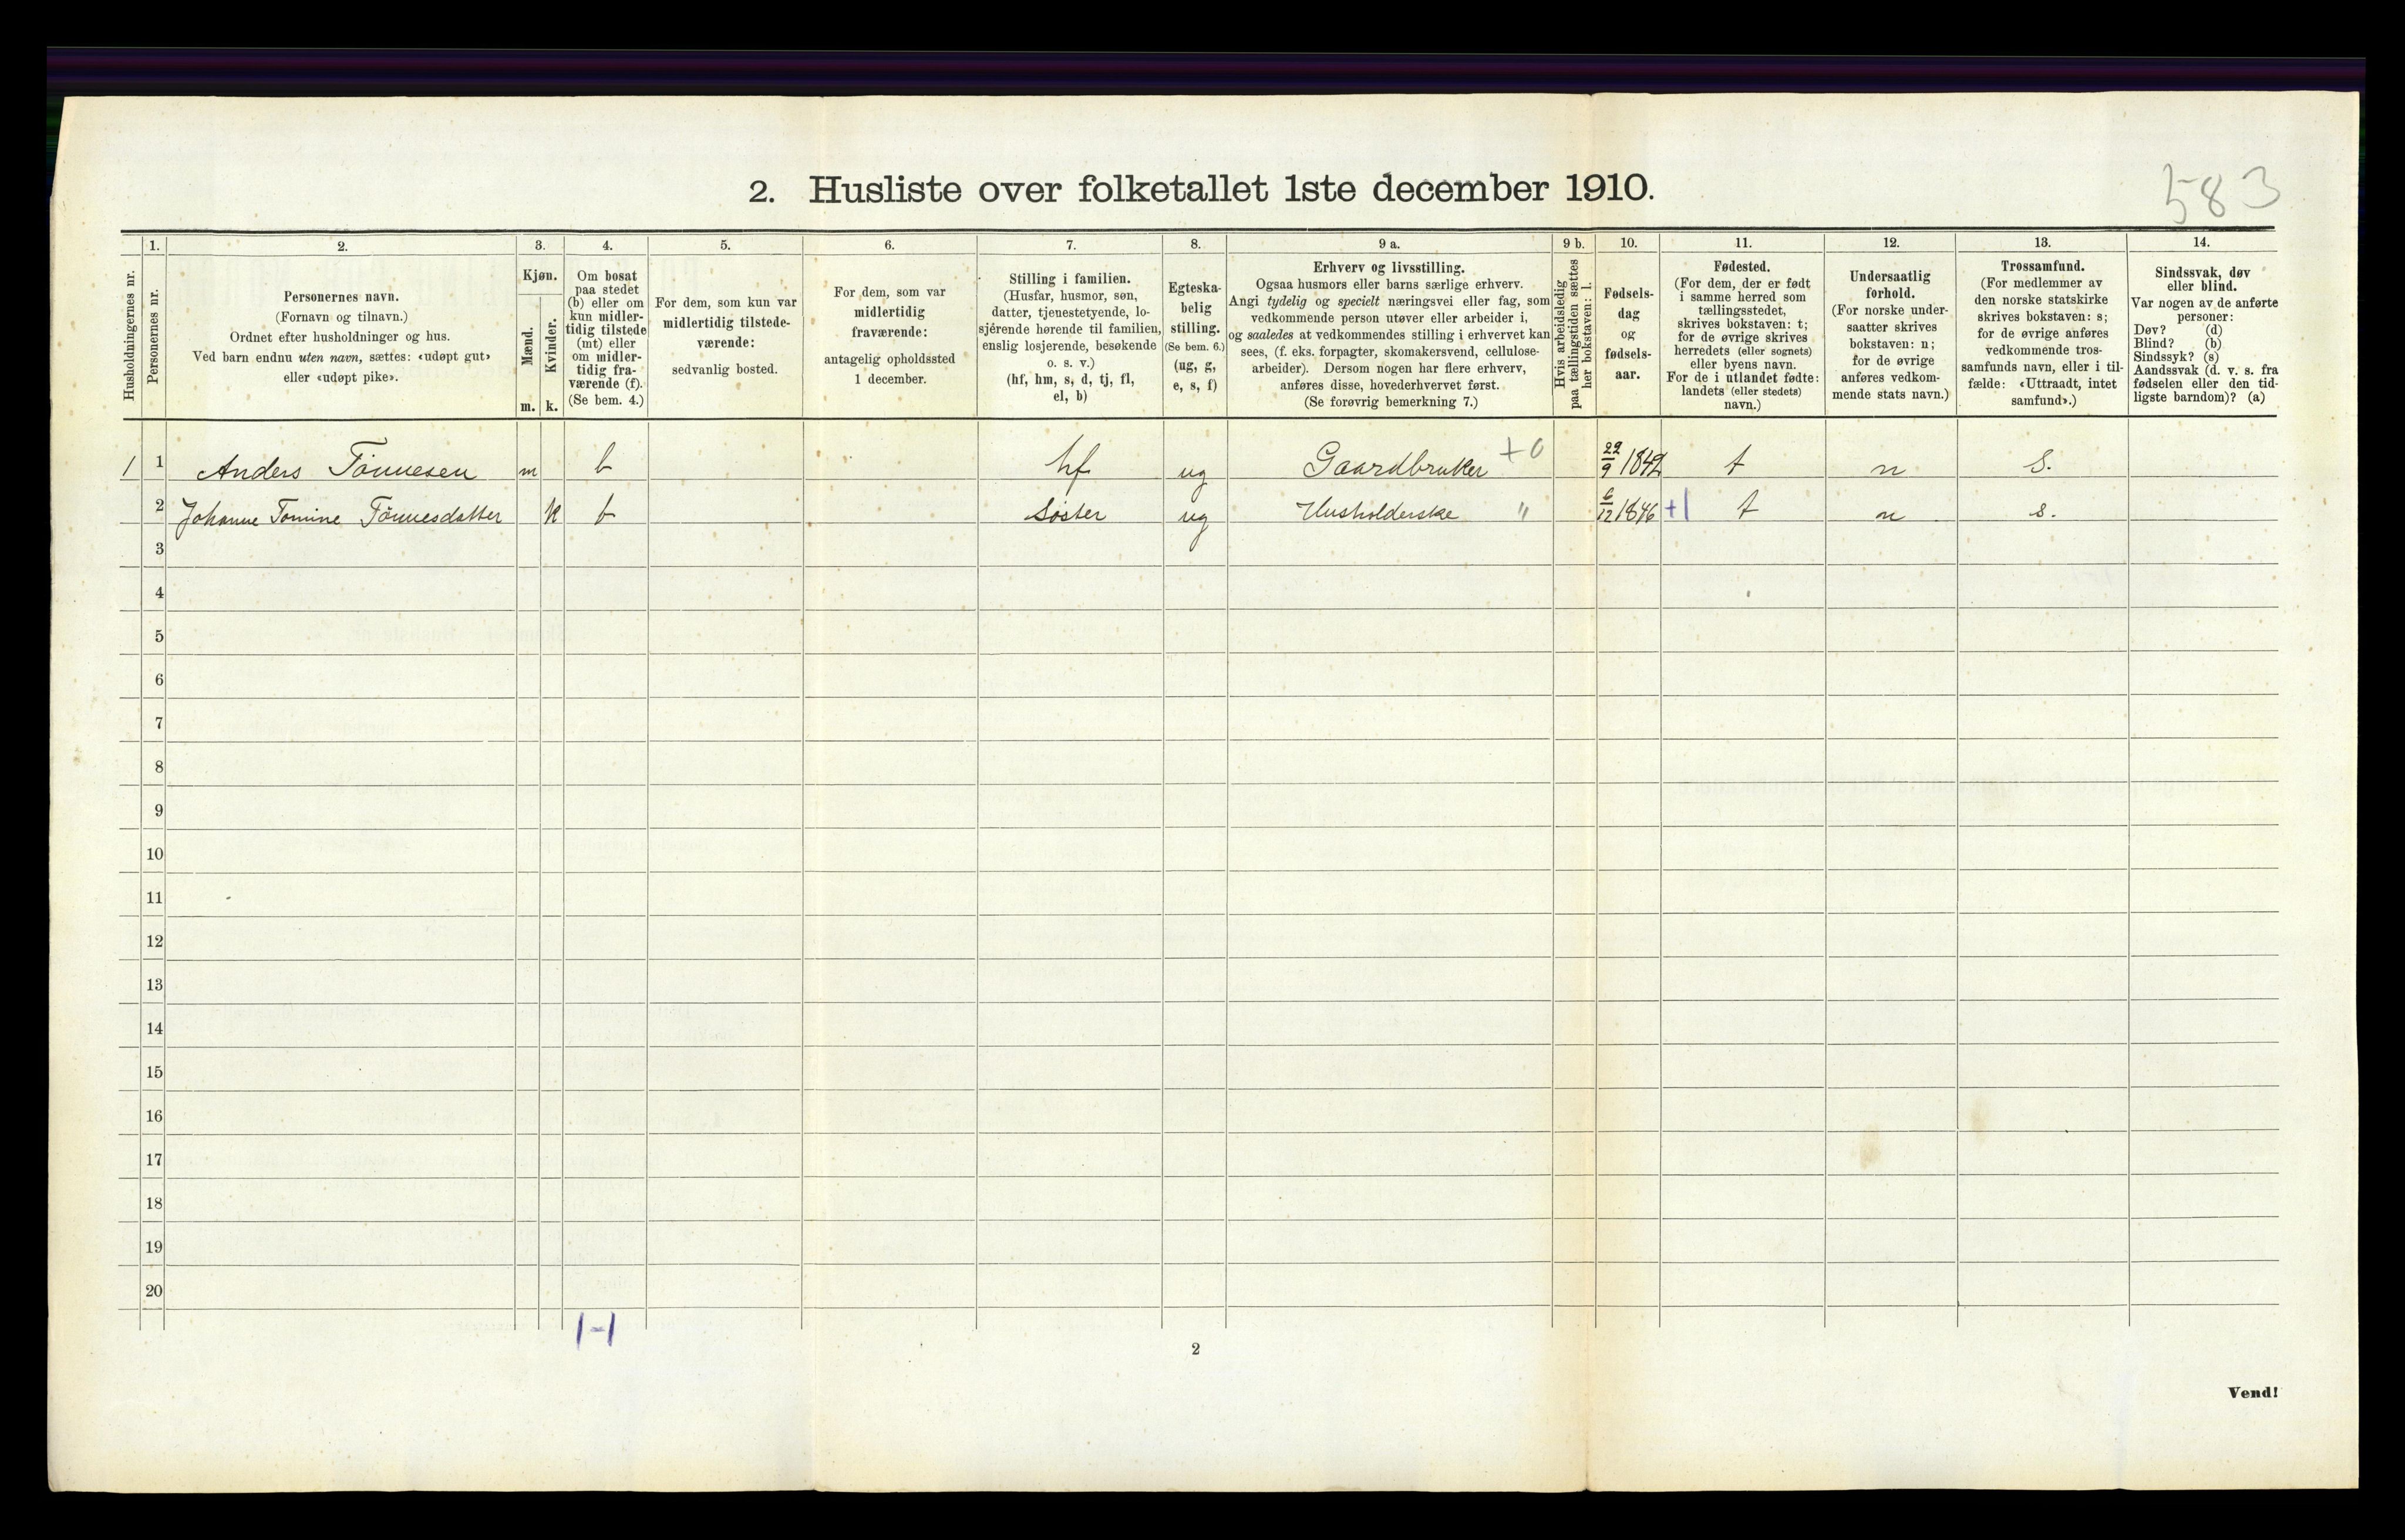 583
2. Husliste over folketallet 1ste december 1910.
Husholdningernes nr.
1.
Personernes nr.
2.
Personernes navn.
(Fornavn og tilnavn.)
Ordnet efter husholdninger og hus.
Ved barn endnu uten navn, sættes: «udøpt gut»
eller «udøpt pike».
3.
Kjøn.
Mænd.
m.
Kvinder.
k.
4.
Om bosat
paa stedet
(b) eller om
kun midler-
tidig tilstede
(mt) eller
om midler-
tidig fra-
værende (f).
(Se bem. 4.)
5.
For dem, som kun var
midlertidig tilstede-
værende:
sedvanlig bosted.
6.
For dem, som var
midlertidig
fraværende:
antagelig opholdssted
1 december.
7.
Stilling i familien.
(Husfar, husmor, søn,
datter, tjenestetyende, lo-
sjérende hørende til familien,
enslig losjerende, besøkende
o. s. v.)
(hf, hm, s, d, tj, fl,
el, b)
8.
Egteska-
belig
stilling.
(Se bem. 6.)
(ug, g,
e, s, f)
9 a.
Erhverv og livsstilling.
Ogsaa husmors eller barns særlige erhverv.
Angi tydelig og specielt næringsvei eller fag, som
vedkommende person utøver eller arbeider i,
og saaledes at vedkommendes stilling i erhvervet kan
sees, (f. eks. forpagter, skomakersvend, cellulose-
arbeider). Dersom nogen har flere erhverv,
anføres disse, hovederhvervet først.
(Se forøvrig bemerkning 7.)
9 b.
Hvis arbeidsledig
paa tællingstiden sættes
her bokstaven: l.
10.
Fødsels-
dag
og
fødsels-
aar.
11.
Fødested.
(For dem, der er født
i samme herred som
tællingsstedet,
skrives bokstaven: t;
for de øvrige skrives
herredets (eller sognets)
eller byens navn.
For de i utlandet fødte:
landets (eller stedets)
navn.)
12.
Undersaatlig
forhold.
(For norske under-
saatter skrives
bokstaven: n;
for de øvrige
anføres vedkom-
mende stats navn.)
13.
Trossamfund.
(For medlemmer av
den norske statskirke
skrives bokstaven: s;
for de øvrige anføres
vedkommende tros-
samfunds navn, eller i til-
fælde: «Uttraadt, intet
samfund».)
14.
Sindssvak, døv
eller blind.
Var nogen av de anførte
personer:
Døv? (d)
Blind? (b)
Sindssyk? (s)
Aandssvak (d. v. s. fra
fødselen eller den tid-
ligste barndom)? (a)
1 1 Anders Tönnesen m b hf ug Gaardbruker +0 22/9 1842 t n S.
2 Johanne Tomine Tönnesdatter k b Söster ug Husholderske " 6/12 1846 +1 t n s.
3
4
5
6
7
8
9
10
11
12
13
14
15
16
17
18
19
20
1-1
2
Vend!